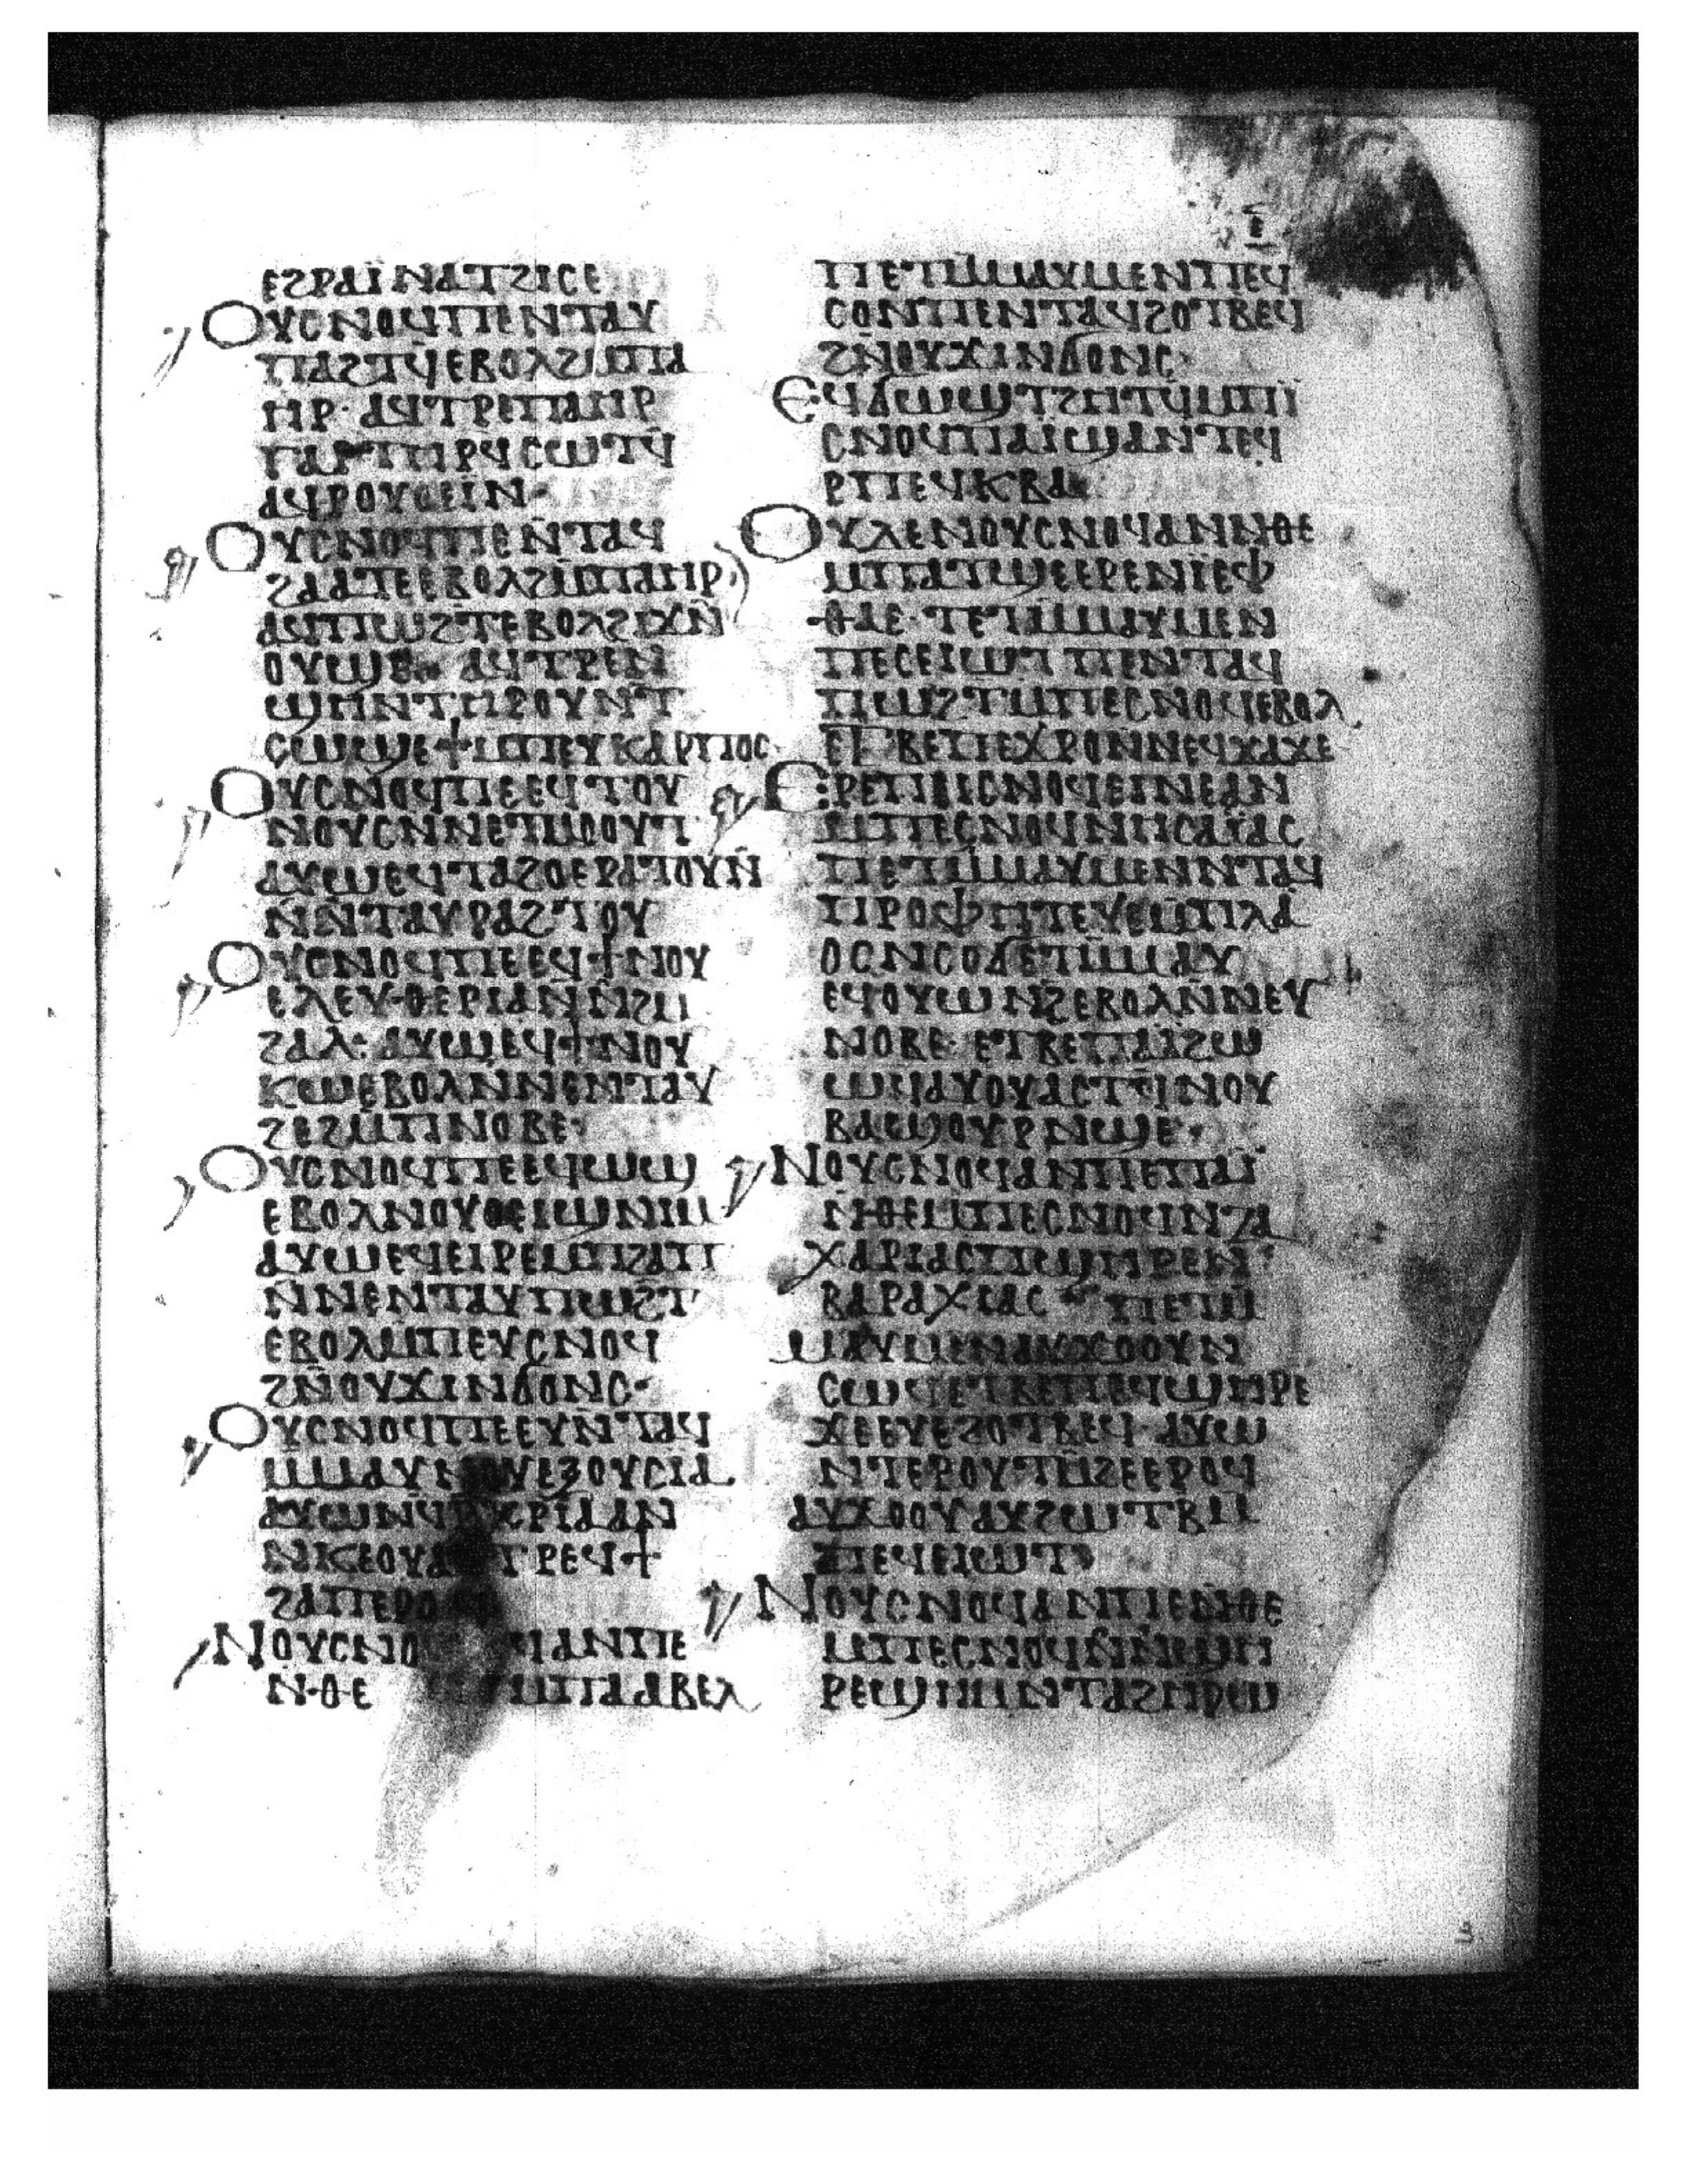 ⲉϩⲣⲁⲓ̈ ⲛⲁⲧϩⲓⲥⲉ
ⲟⲩⲥⲛⲟϥⲡⲉⲛⲧⲁⲩ
ⲡⲁϩⲧϥⲉⲃⲟⲗϩⲙⲡⲁ
ⲏⲣ· ⲁϥⲧⲣⲉⲡⲁⲏⲣ
ⲅⲁⲣ ⲧⲏⲣϥⲥⲱⲧϥ
ⲁϥⲣⲟⲩⲟⲉⲓⲛ·
ⲟⲩⲥⲛⲟϥⲡⲉⲛⲧⲁϥ
ϩⲁⲁⲧⲉⲉⲃⲟⲗϩⲙⲡⲁⲏⲣ
ⲁϥⲡⲱϩⲧⲉⲃⲟⲗϩⲓϫⲛ̄
ⲁϥⲧⲣⲉⲛ
ϣⲏⲛⲧⲏⲣⲟⲩⲛⲧ
ⲥⲱϣⲉϯⲙⲡⲉⲩⲕⲁⲣⲡⲟⲥ·
ⲟⲩⲥⲛⲟϥⲡⲉⲉϥⲧⲟⲩ
ⲛⲟⲩⲥⲛⲛⲉⲧⲙⲟⲟⲩⲧ
ⲁⲩⲱⲉϥⲧⲁϩⲟⲉⲣⲁⲧⲟⲩⲛ̄
ⲛ̄ⲛⲧⲁⲩⲣⲁϩⲧⲟⲩ
ⲟⲩⲥⲛⲟϥⲡⲉⲉϥϯⲛⲟⲩ
ⲉⲗⲉⲩⲑⲉⲣⲓⲁⲛ̄ⲛ̄ϩⲙ
ϩⲁⲗ: ⲁⲩⲱⲉϥϯⲛⲟⲩ
ⲕⲱⲉⲃⲟⲗⲛⲛⲉⲛⲧⲁⲩ
ϩⲉϩⲙⲡⲛⲟⲃⲉ·
ⲟⲩⲥⲛⲟϥⲡⲉⲉϥⲱϣ
ⲉⲃⲟⲗⲛⲟⲩⲟⲉⲓϣⲛⲓⲙ
ⲁⲩⲱⲉϥⲉⲓⲣⲉⲙⲡϩⲁⲡ
ⲛⲛⲉⲛⲧⲁⲩⲡⲱϩⲧ
ⲉⲃⲟⲗⲙⲡⲉⲩⲥⲛⲟϥ
ϩⲛ̄ⲟⲩϫⲓⲛϭⲟⲛⲥ·
ⲟⲩⲥⲛⲟϥⲡⲉⲉⲩⲛ̄ⲧⲁϥ
ⲙⲙⲁⲩⲛⲟⲩⲉⲝⲟⲩⲥⲓⲁ
ⲁⲩⲱⲛϥⲣ̄ⲭⲣⲓⲁⲁⲛ
ⲧⲣⲉϥϯ
ϩⲁⲡⲉⲣⲟ
ⲛⲟⲩⲥⲛⲟ ⲁⲛⲡⲉ
ⲛⲑⲉ ⲙⲡⲁⲁⲃⲉⲗ
ⲡⲉⲧⲙ̄ⲙⲁⲩⲙⲉⲛⲡⲉϥ
ⲥⲟⲛⲡⲉⲛⲧⲁϥϩⲟⲧⲃⲉϥ
ϩⲛ̄ⲟⲩϫⲓⲛϭⲟⲛⲥ·
ⲉϥϭⲱϣⲧϩⲏⲧϥ̄ⲙⲡⲓ̈
ⲥⲛⲟϥⲡⲁⲓϣⲁⲛⲧⲉϥ
ⲣⲡⲉϥⲕⲃⲁ
ⲟⲩⲗⲉⲛⲟⲩⲥⲛⲟϥⲁⲛⲛⲑⲉ
ⲙⲡⲁⲧϣⲉⲉⲣⲉⲛⲓ̈ⲉⲫ
ⲑⲁⲉ· ⲧⲉⲧⲙ̄ⲙⲁⲩⲙⲉⲛ
ⲡⲉⲥⲉⲓⲱⲧ ⲡⲉⲛⲧⲁϥ
ⲡⲱϩⲧⲙⲡⲉⲥⲛⲟϥⲉⲃⲟⲗ
ⲉⲧⲃⲉⲡⲉϫⲣⲟⲛⲛⲉϥϫⲁϫⲉ
ⲉⲣⲉⲡⲉⲓⲥⲛⲟϥⲉⲓⲛⲉⲁⲛ
ⲙⲡⲉⲥⲛⲟϥⲛⲏⲥⲁⲓ̈ⲁⲥ
ⲡⲉⲧⲙ̄ⲙⲁⲩⲙⲉⲛⲛⲧⲁϥ
ⲡⲣⲟⲫⲏⲧⲉⲩⲉⲙⲡⲗⲁ
ⲟⲥⲛⲥⲟϭⲉⲧⲙ̄ⲙⲁⲩ
ⲉϥⲟⲩⲱⲛϩⲉⲃⲟⲗⲛ̄ⲛⲉⲩ
ⲛⲟⲃⲉ· ⲉⲧⲃⲉⲡⲁⲓ̈ϩⲱ
ⲱϥⲁⲩⲟⲩⲁⲥⲧϥⲛⲟⲩ
ⲃⲁϣⲟⲩⲣⲛϣⲉ·
ⲛⲟⲩⲥⲛⲟϥⲁⲛⲡⲉⲡⲁⲓ̈
ⲛⲑⲉⲙⲡⲉⲥⲛⲟϥⲛⲍⲁ
ⲭⲁⲣⲓⲁⲥⲡϣⲏⲣⲉⲛ
ⲃⲁⲣⲁⲭⲓⲁⲥ ⲡⲉⲧⲙ̄
ⲙⲁⲩⲙⲉⲛⲁⲩϫⲟⲟⲩⲛ
ⲥⲱϥⲉⲧⲃⲉⲡⲉϥϣⲏⲣⲉ
ϫⲉⲉⲩⲉϩⲟⲧⲃⲉϥ· ⲁⲩⲱ
ⲛⲧⲉⲣⲟⲩⲧⲙ̄ϩⲉⲉⲣⲟϥ
ⲁⲩϫⲟⲟⲩⲁⲩϩⲱⲧⲃⲙ̄
ⲡⲉϥⲉⲓⲱⲧ
ⲛⲟⲩⲥⲛⲟϥⲁⲛⲡⲉⲛⲑⲉ
ⲙⲡⲉⲥⲛⲟϥⲛ̄ⲛ̄ϣⲏ
ⲣⲉϣⲏⲙⲛⲧⲁϩⲏⲣⲱ